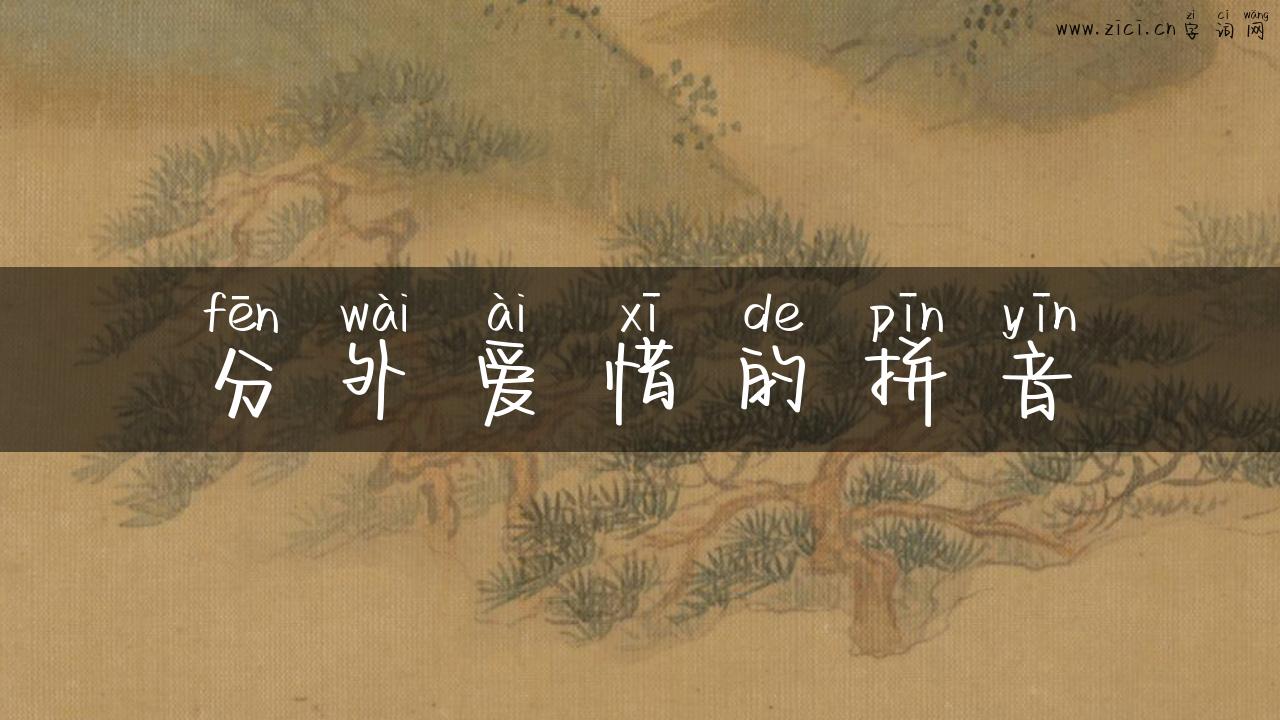 zì cí wǎng
www.zìcí.cn 字词网
fēn wài ài xī de pīn yīn
分外爱惜的拼音